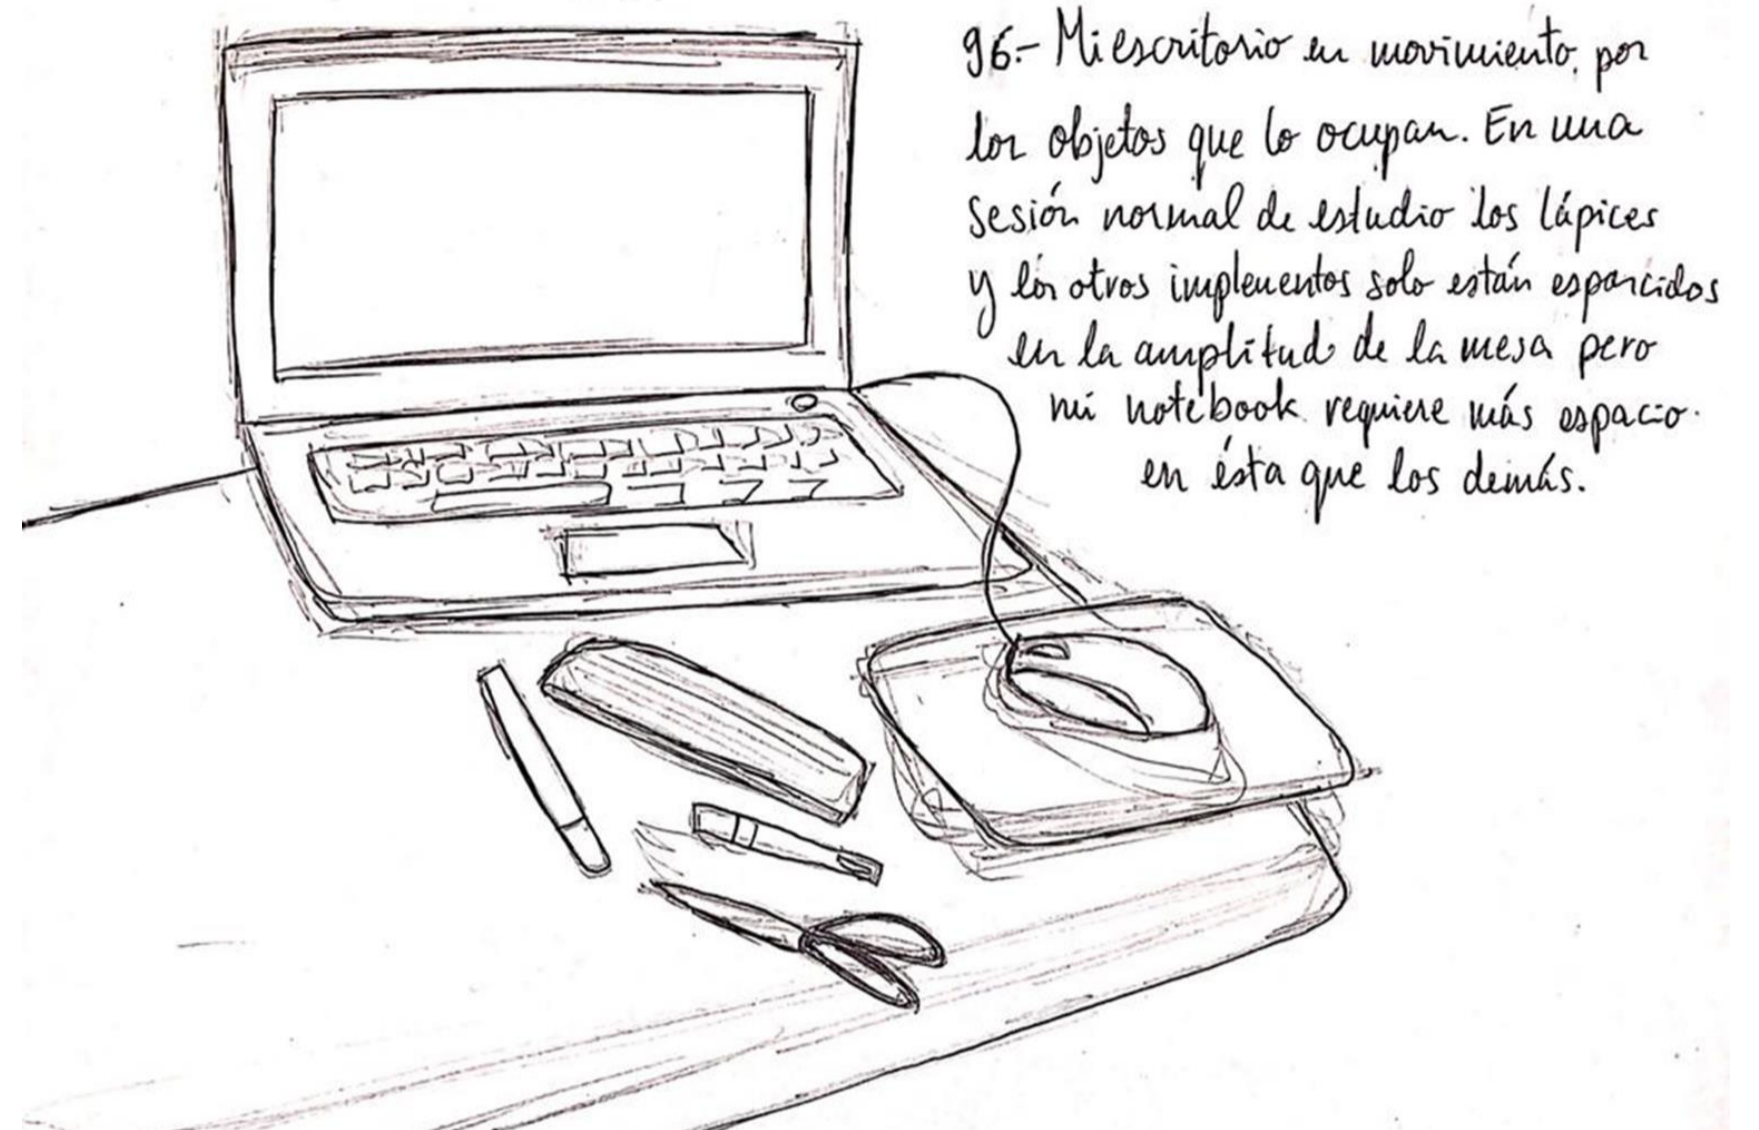 96.- Mi escritorio en movimiento, por
los objetos que lo ocupan. En una
sesión normal de estudio los lápices
y los otros implementos solo están esparcidos
en la amplitud de la mesa pero
mi notebook requiere más espacio.
en ésta que los demás.